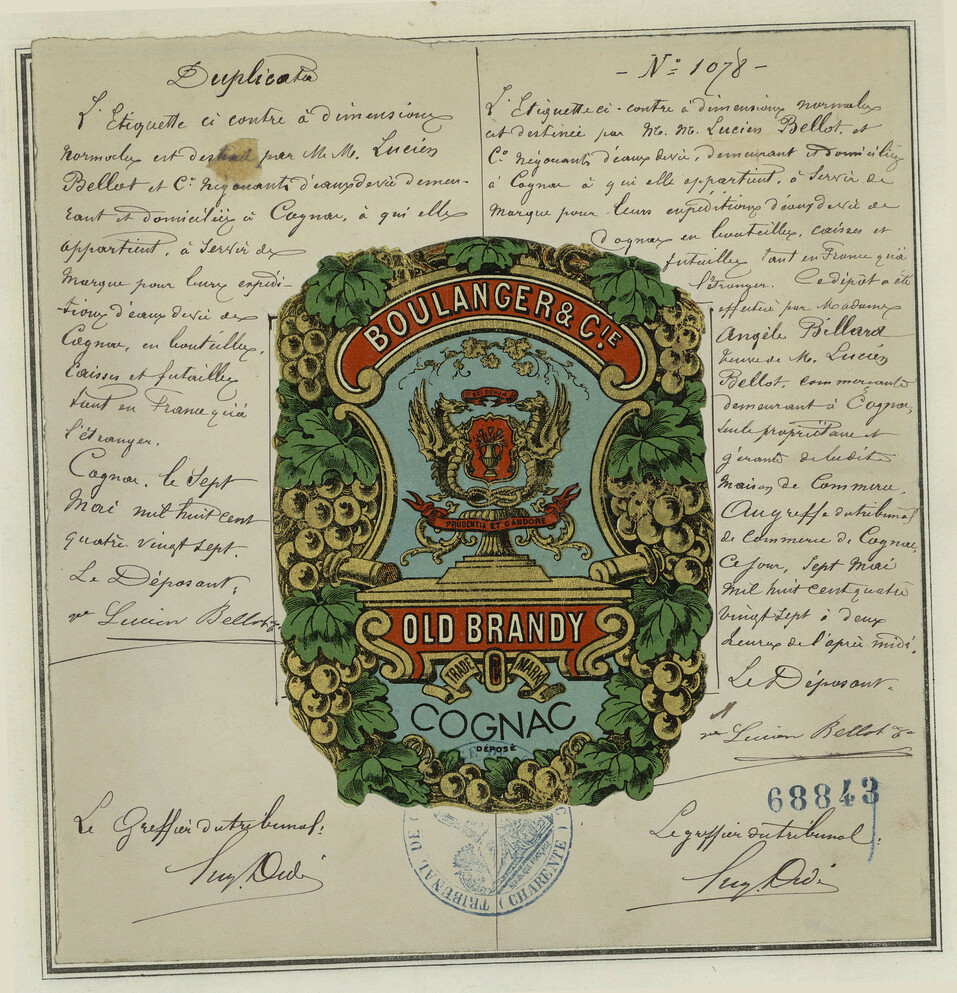 Duplicata
L'Etiquette ci contre à dimensions
normales est destinée par M. M. Lucien
Bellot et Cie Négociants d'eaux de vie demeu-
rant et domiciliés à Cognac, à qui elle
appartient, à servir de
Marque pour leurs expédi-
tions d'eaux de vie de
Cognac, en bouteilles,
Caisses et futailles
tant en France qu'à
l'étranger.
Cognac, le Sept
Mai mil huit cent
quatre vingt sept
Le Déposant,
Vve Lucien Bellot & Co
Le Greffier du tribunal:
- No 1078 -
L'Etiquette ci-contre à dimensions normales
est destinée par M. M. Lucien Bellot, et
Cie Négociants d'eaux de vie, demeurant et domiciliés
à Cognac à qui elle appartient, à servir de
Marque pour leurs expéditions d'eaux de vie de
Cognac en bouteilles, caisses et
futailles tant en France qu'à
l'étranger. Ce dépôt a été
effectué par Madame
Angèle Billard
Veuve de M. Lucien
Bellot, commerçante
demeurant à Cognac,
seule propriétaire et
gérante de ladite
Maison de Commerce,
Au greffe du tribunal
de commerce de Cognac,
Ce jour, Sept Mai
Mil huit cent quatre
vingt sept à deux
heures de l'après midi.
Le Déposant.
Vve Lucien Bellot & Co
68843
Le greffier du tribunal:
BOULANGER & CIE
PRUDENTIA ET CANDORE
OLD BRANDY
TRADE MARK
COGNAC
DÉPOSÉ
TRIBUNAL DE C
(CHARENTE)